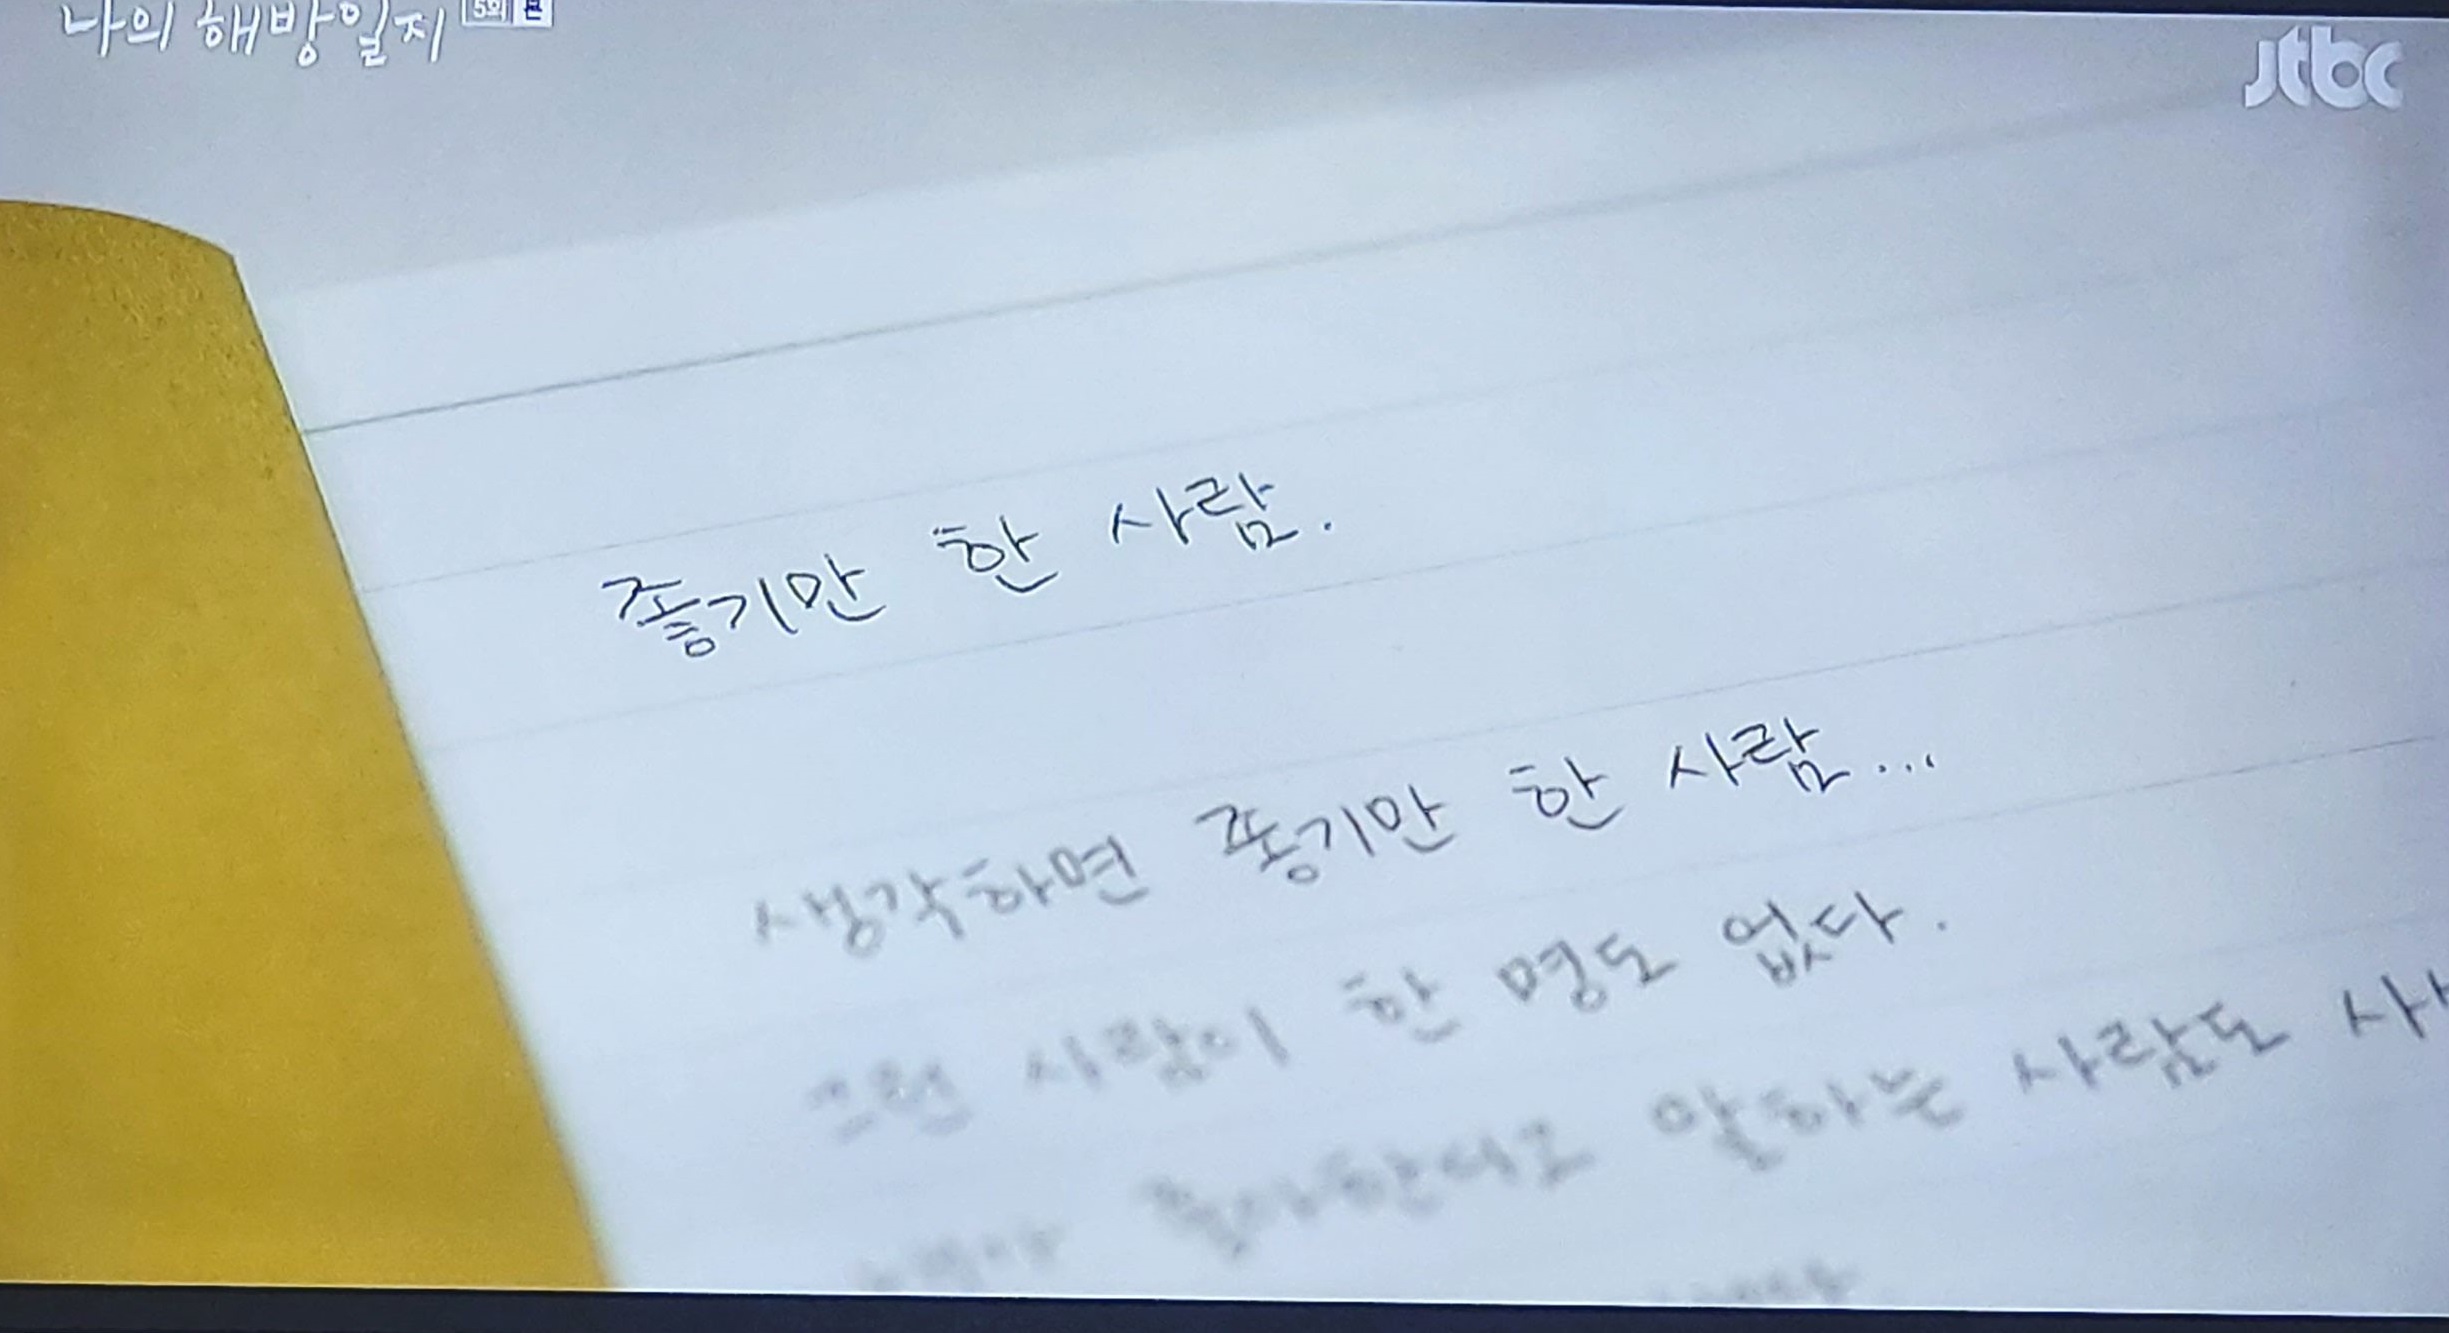 나의 해방일지 5회 본
jtbc
좋기만 한 사람.
생각하면 좋기만 한 사람...
그런 사람이 한 명도 없다.
좋아한다고 말하는 사람도